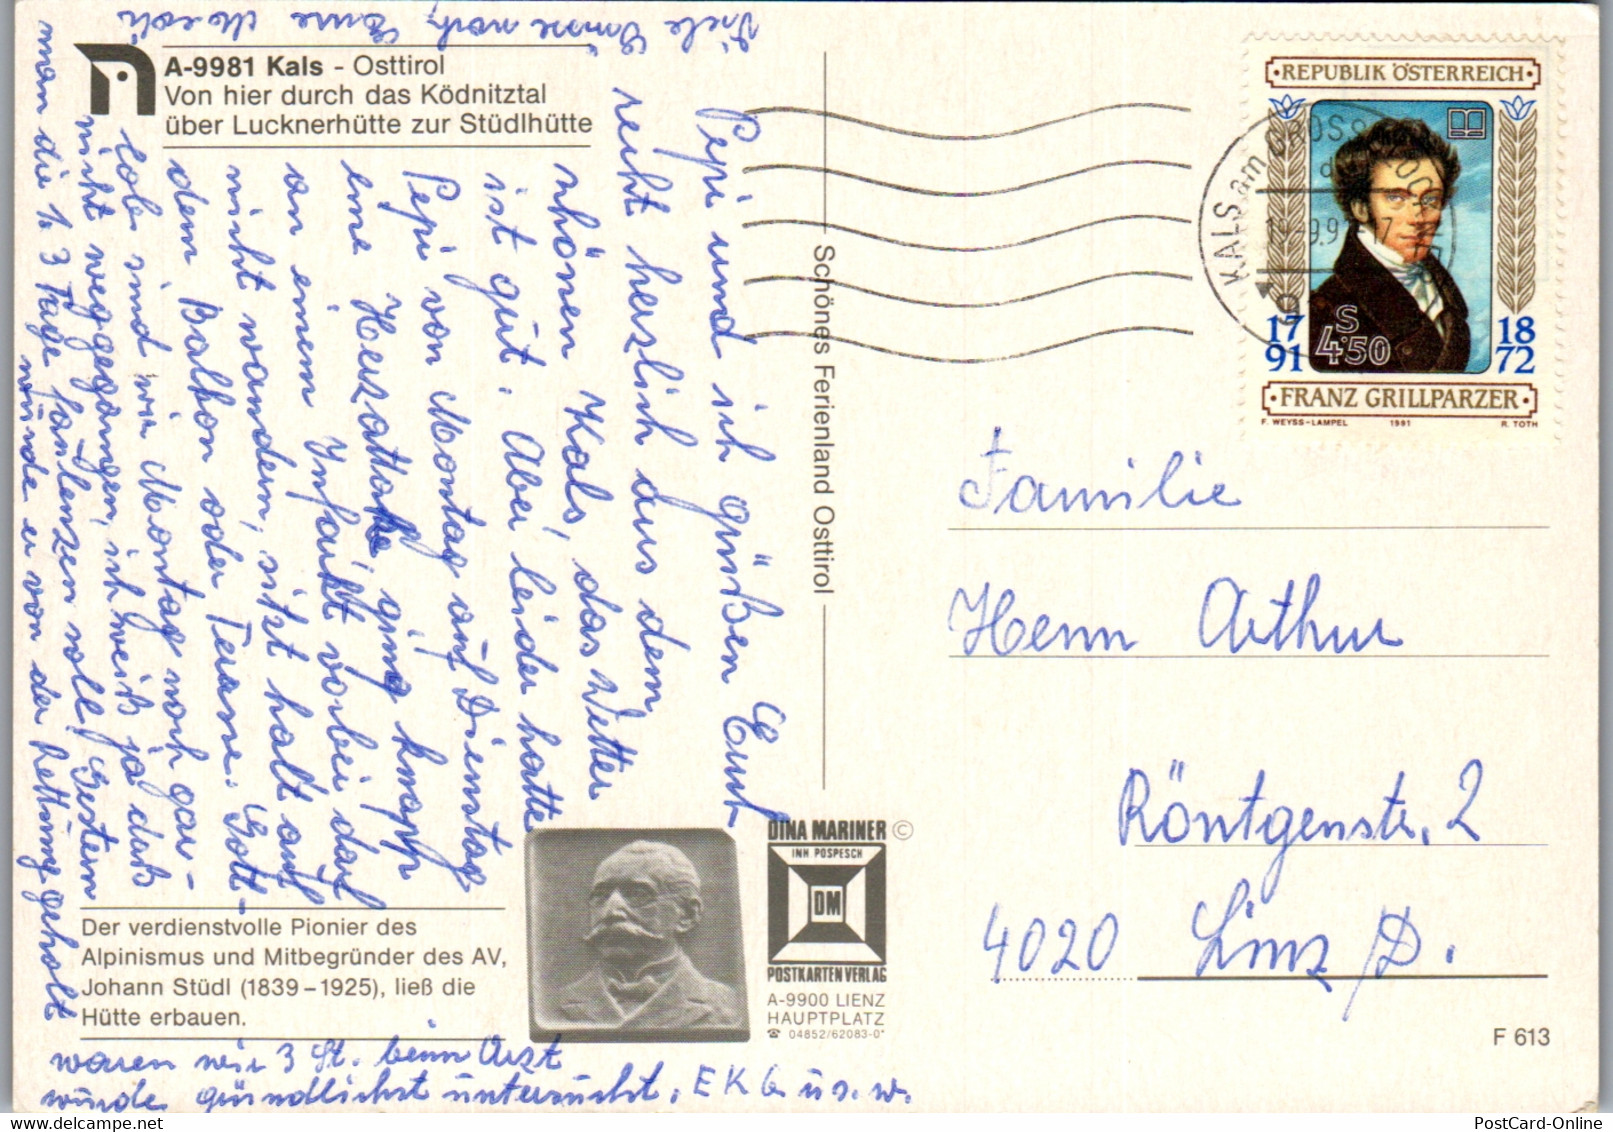 A-9981 Kals - Osttirol
Von hier durch das Ködnitztal
über Lucknerhütte zur Stüdlhütte
Pepi und ich grüßen Euch
recht herzlich aus dem
schönen Kals, das Wetter
ist gut. Aber leider hatte
Pepi von Montag auf Dienstag
eine Herzattake, ging knapp
an einem Infarkt vorbei darf
nicht wandern, sitzt halt auf
dem Balkon oder Terasse. Gott-
lob sind wir Montag noch gar-
nicht weggegangen, ich weiß ja daß
man die 1. 3 Tage faulenzen soll! Gestern
würde er von der Rettung geholt
waren wir 3 St. beim Arzt
wurde gründlichst untersucht. EKG u.s.w.
Viele Eure
Schönes Ferienland Osttirol
Der verdienstvolle Pionier des
Alpinismus und Mitbegründer des AV,
Johann Stüdl (1839–1925), ließ die
Hütte erbauen.
DINA MARINER ©
INH POSPESCH
DM
POSTKARTENVERLAG
A-9900 LIENZ
HAUPTPLATZ
☎ 04852/62083-0*
REPUBLIK ÖSTERREICH
S
4·50
17 91
18 72
FRANZ GRILLPARZER
F. WEYSS-LAMPEL 1991 R. TOTH
KALS am GROSSGLOCKNER
Familie
Herrn Arthur
Röntgenstr. 2
4020 Linz /D.
F 613
PostCard-Online